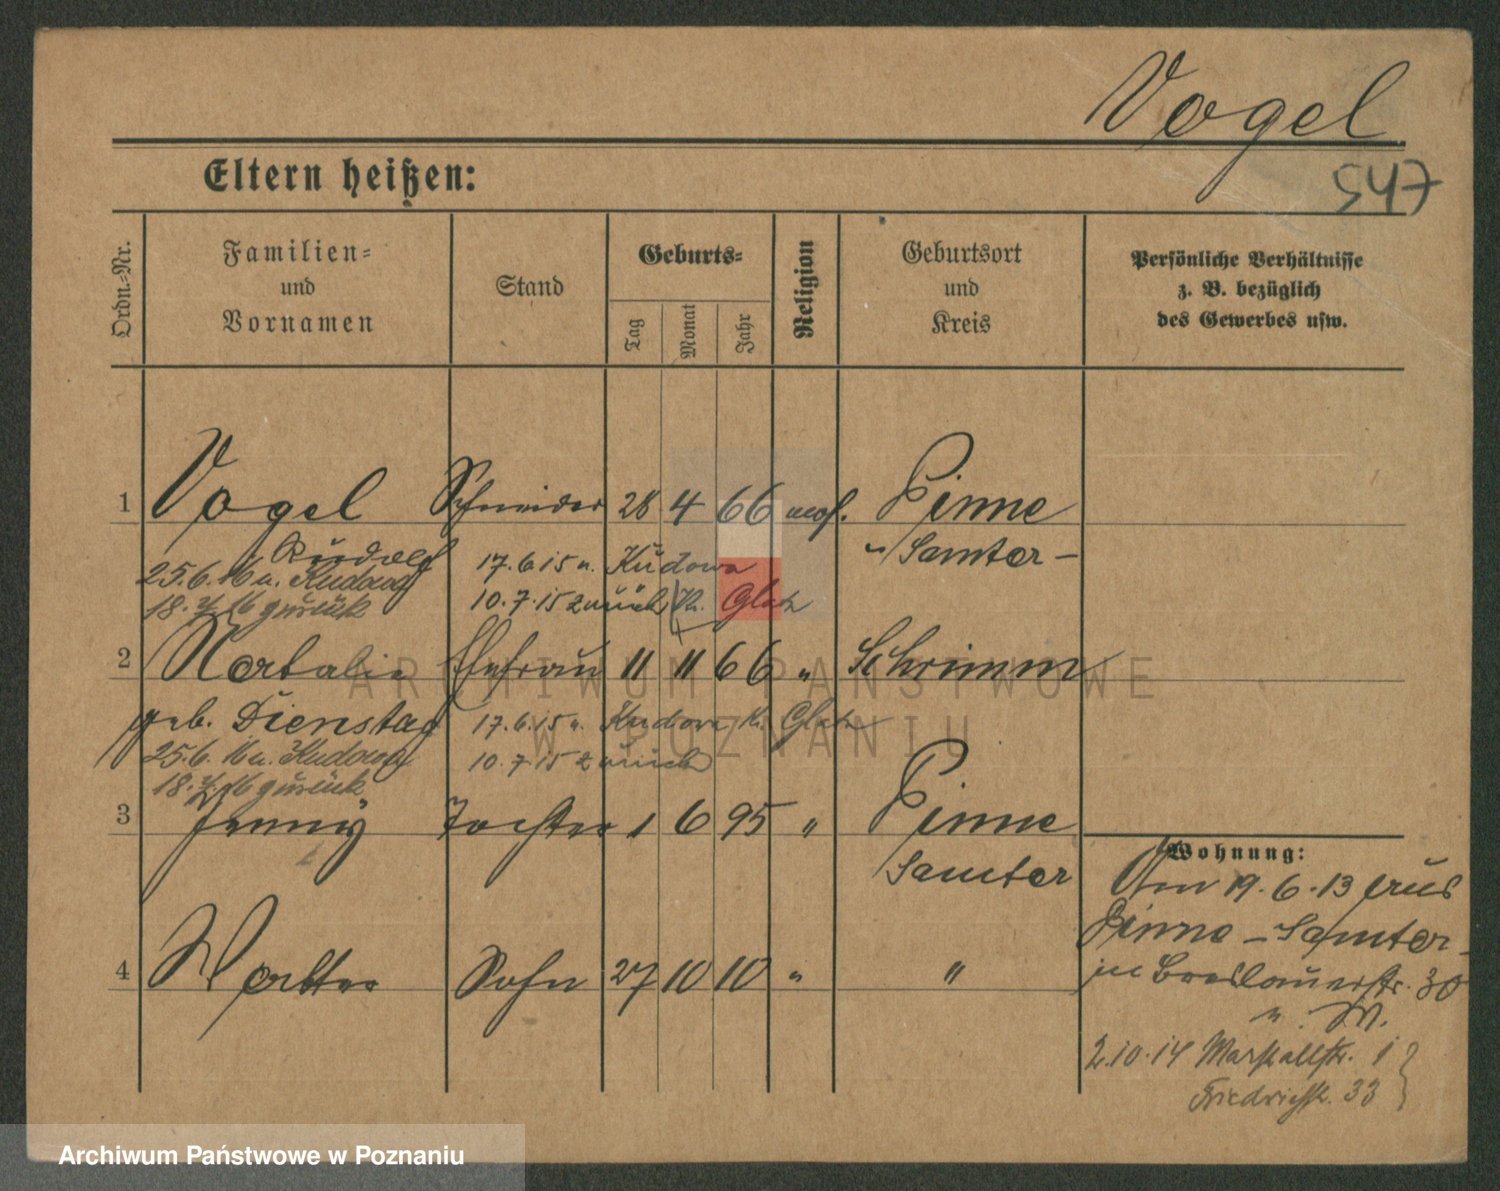 Vogel
547
Eltern heißen:
Ordn.-Nr.
Familien-
und
Vornamen
Stand
Geburts-
Tag
Monat
Jahr
Religion
Geburtsort
und
Kreis
Persönliche Verhältnisse
z. B. bezüglich
des Gewerbes usw.
1 Vogel Schneider 28 4 66 mos. Pinne
Rudolf
Samter -
17.6.15 n. Kudowa
25.6.16 n. Kudowa
10.7.15 zurück Kr. Glatz
18.7.16 zurück
2 Natalie Ehefrau 11 11 66 " Schrimm
geb. Dienstag
17.6.15 n. Kudowa Kr. Glatz
25.6.16 n. Kudowa
10.7.15 zurück
18.7.16 zurück
3 Jenny Tochter 1 6 95 " Pinne
Samter
4 Walter Sohn 27 10 10 " "
Wohnung:
Am 19.6.13 aus
Pinne - Samter -
in Breslauerstr. 30
2.10.14 Marstallstr. 1
Friedrichstr. 33
ARCHIWUM PAŃSTWOWE
W POZNANIU
Archiwum Państwowe w Poznaniu